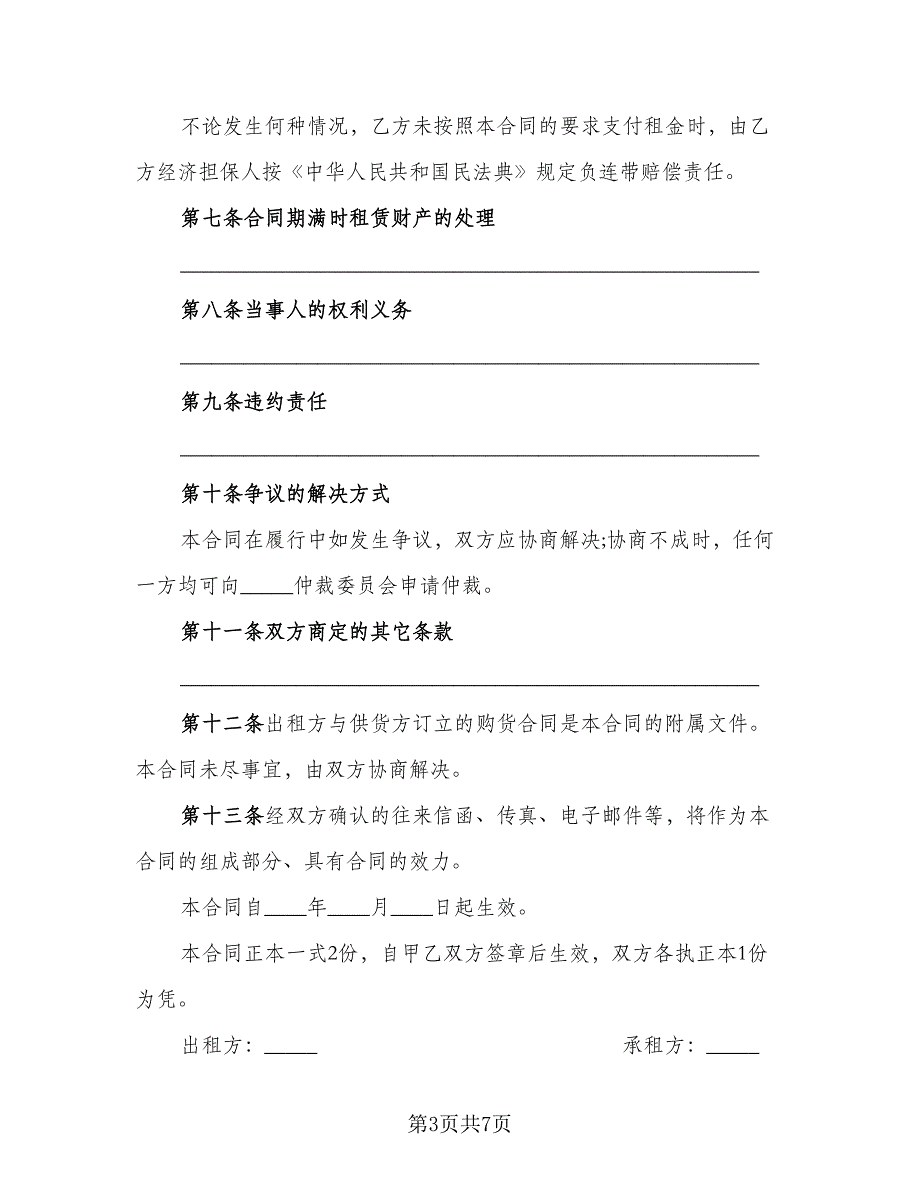 不论发生何种情况，乙方未按照本合同的要求支付租金时，由乙
方经济担保人按《中华人民共和国民法典》规定负连带赔偿责任。
第七条合同期满时租赁财产的处理
_______________________________________________________
第八条当事人的权利义务
_______________________________________________________
第九条违约责任
_______________________________________________________
第十条争议的解决方式
本合同在履行中如发生争议，双方应协商解决;协商不成时，任何
一方均可向_____仲裁委员会申请仲裁。
第十一条双方商定的其它条款
_______________________________________________________
第十二条出租方与供货方订立的购货合同是本合同的附属文件。
本合同未尽事宜，由双方协商解决。
第十三条经双方确认的往来信函、传真、电子邮件等，将作为本
合同的组成部分、具有合同的效力。
本合同自____年____月____日起生效。
本合同正本一式2份，自甲乙双方签章后生效，双方各执正本1份
为凭。
出租方：_____ 承租方：_____
第3页共7页